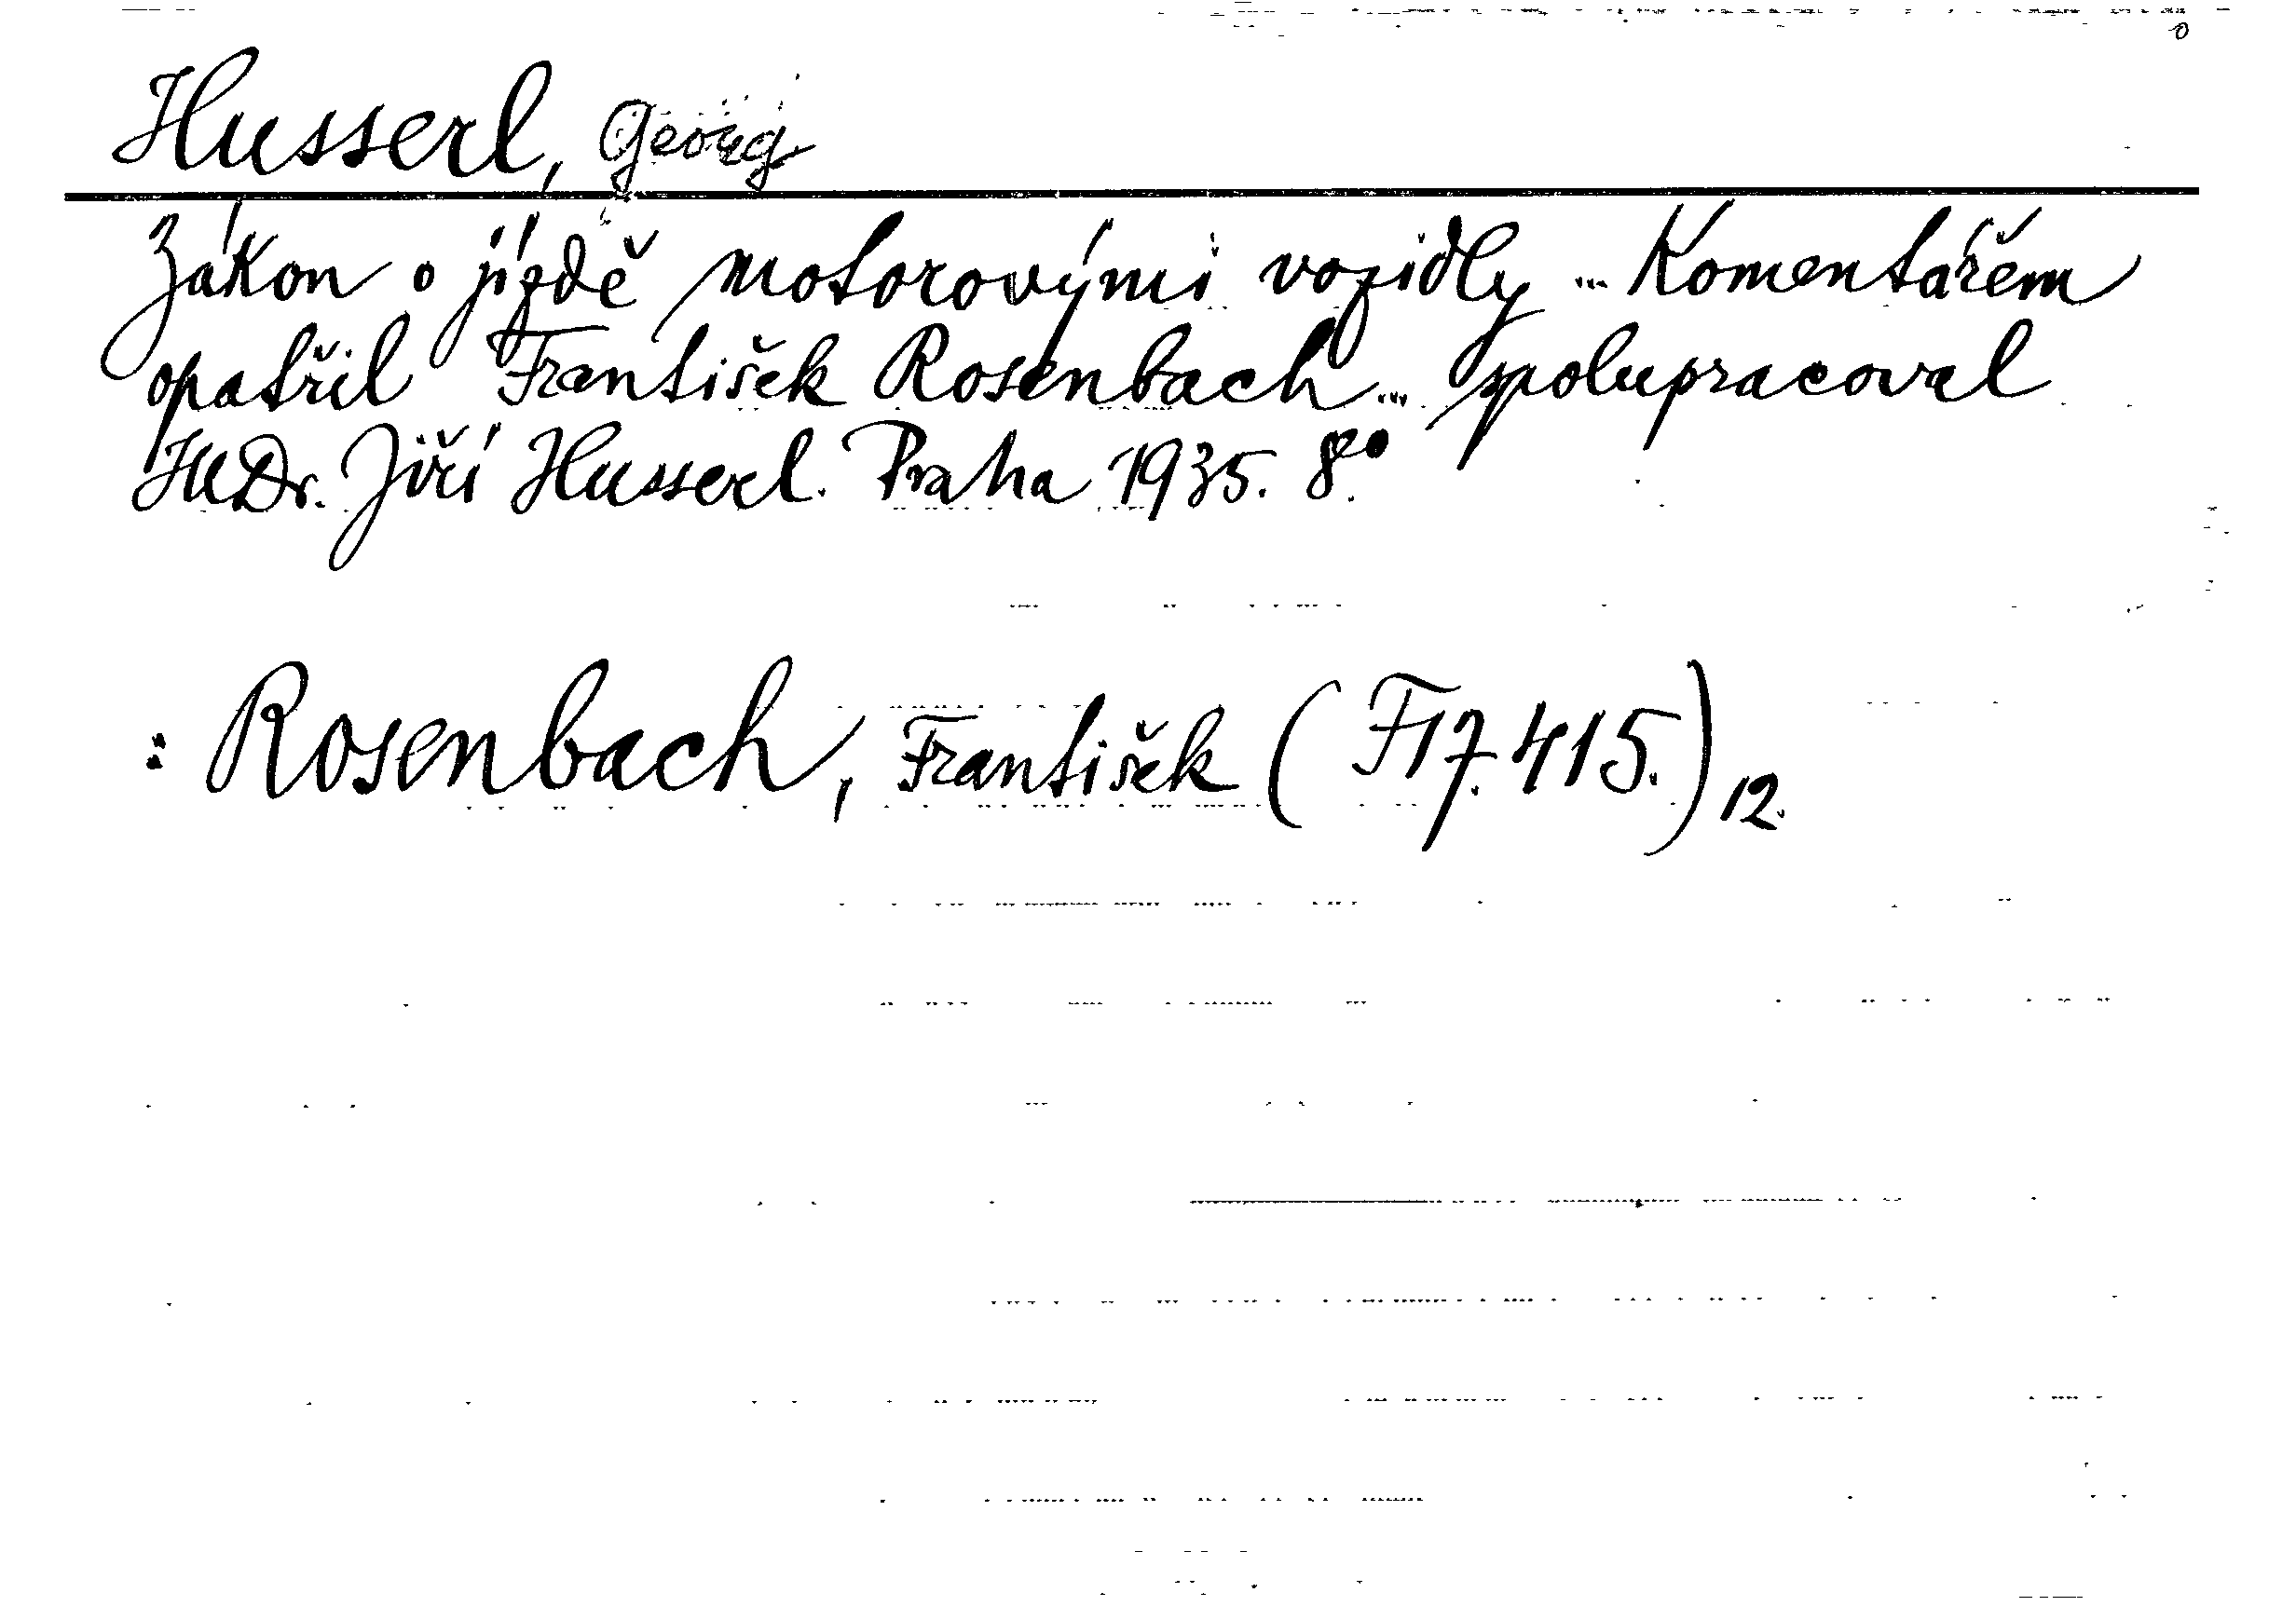 Husserl, Georg
Zákon o jízdě motorovými vozidly ... Komentářem
opatřil František Rosenbach ... spolupracoval
JUDr. Jiří Husserl. Praha 1935. 8°.
: Rosenbach, František (F17.415.) 12.